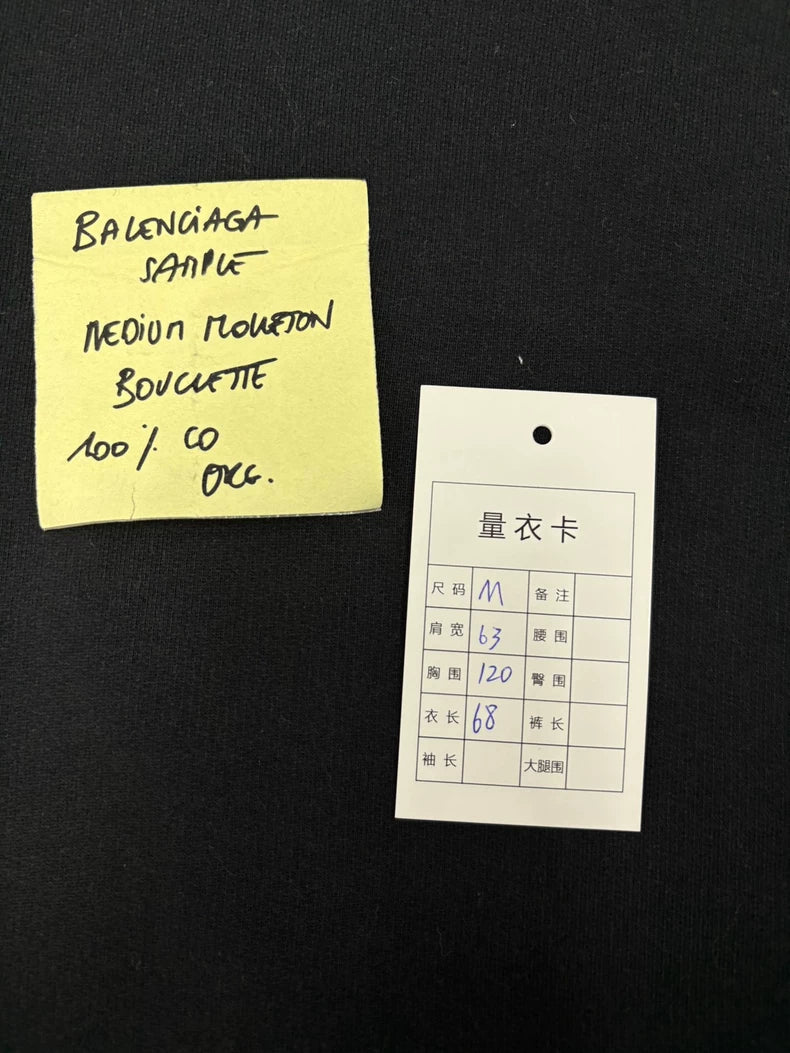 BALENCIAGA
SAMPLE
MEDIUM MOLLETON
BOUCLETTE
100% CO
ORG.
量衣卡
尺码 M 备注
肩宽 63 腰围
胸围 120 臀围
衣长 68 裤长
袖长 大腿围